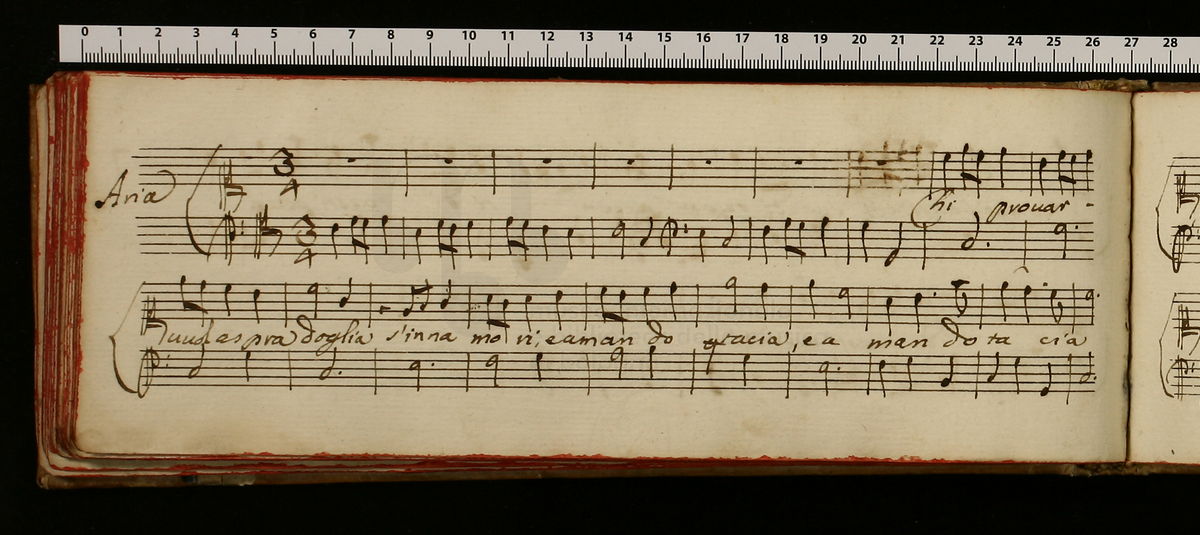 0 1 2 3 4 5 6 7 8 9 10 11 12 13 14 15 16 17 18 19 20 21 22 23 24 25 26 27 28
Aria
3 4
Chi prouar -
3 4
uuol aspra doglia s'inna mo ri, e aman do tacia, e a man do ta cia